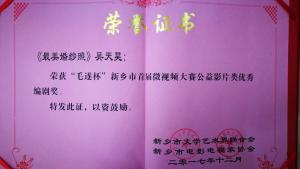 荣誉证书
《最美婚纱照》吴天昊：
荣获“毛遂杯”新乡市首届微视频大赛公益影片类优秀
编剧奖。
特发此证，以资鼓励。
新乡市文学艺术界联合会
新乡市电影电视艺术家协会
二〇一七年十二月